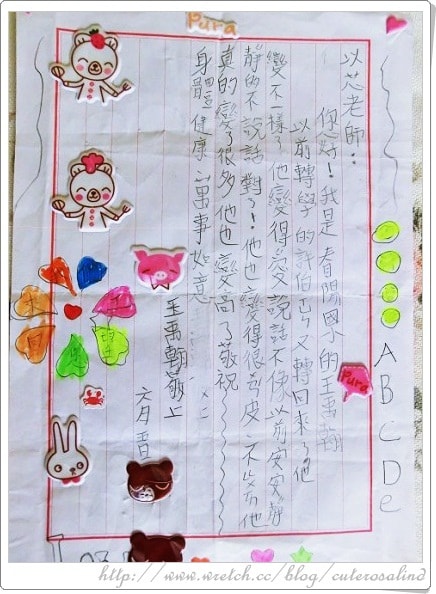 Pura
以芯老師：
你好！我是春陽國小的王禹翰
以前轉學的許伯又轉回來了他
變不一樣了他變得愛說話不像以前安安靜
靜的不說話對了！他也變得很皮他
真的變了很多他也變高了敬祝
身體健康 萬事如意
王禹翰敬上
六月
Pura
A B C D e
http://www.wretch.cc/blog/cuterosalind